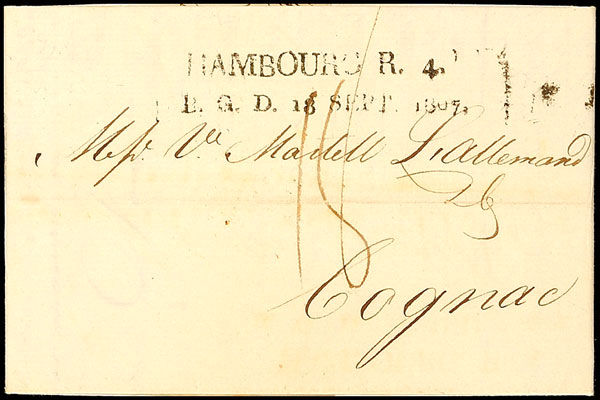 HAMBOURG R. 4.
B. G. D. 18 SEPT. 1807.
Ve Martell Lallemand
Cognac